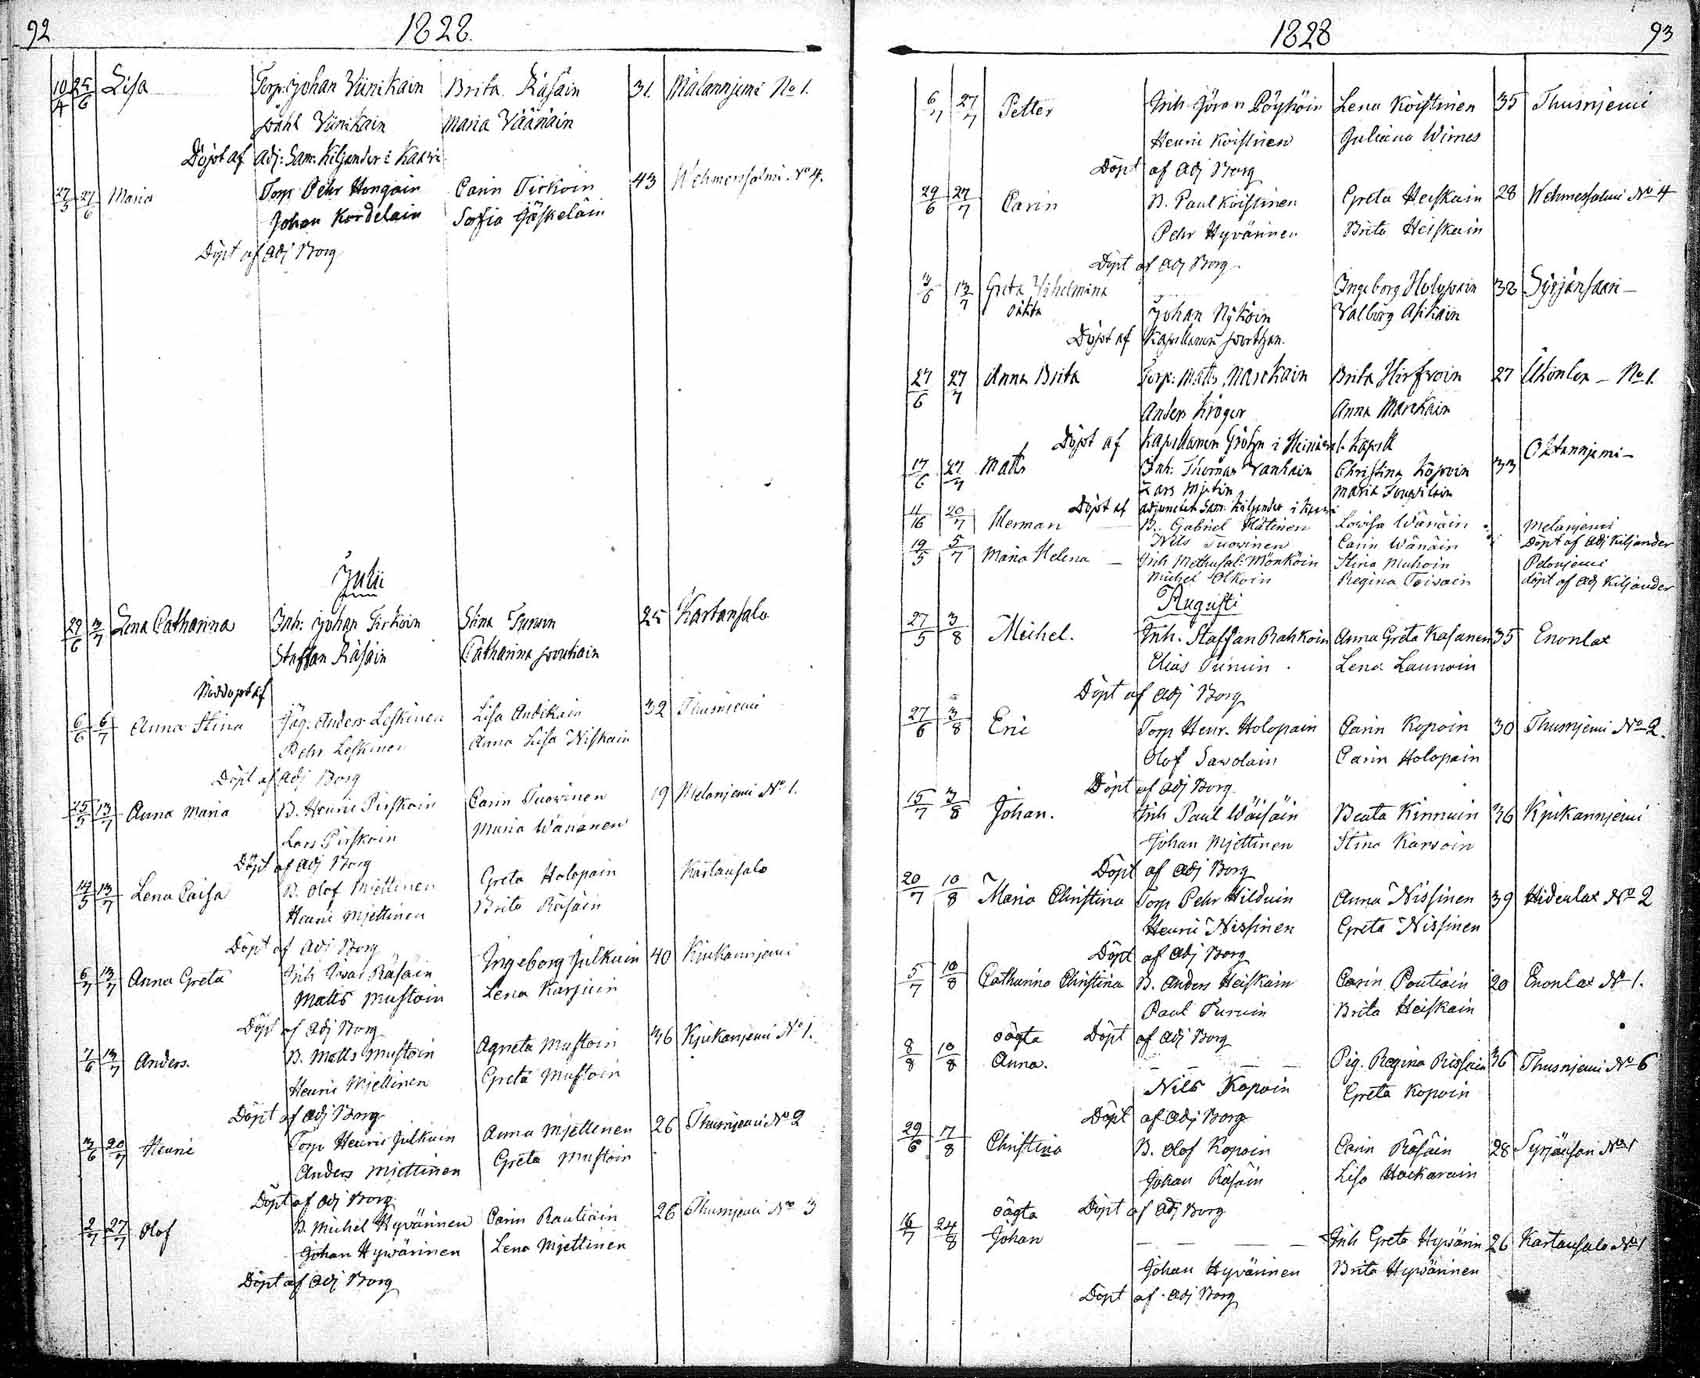 92 1828.
10/4 25/6 Lisa Torp: Johan Vänikain Brita Räsäin 31. Malannjemi No 1.
Påhl Vänikain Maria Väänäin
Döpt af Adj: Sam: Kiljander i Kaavi
27/5 27/6 Maria Torp Pehr Hongain Carin Tirkoin 43 Wehmersalmi No 4.
Johan Kordelain Sofia Jäskeläin
Döpt af Adj Borg
Julii
29/6 3/7 Lena Catharina Inh: Johan Tirkoin Stina Turuin 25 Kartansalo
Staffan Räsäin Catharina
Nöddöpt af
6/6 6/7 Anna Stina Jäg. Anders Leskinen Lisa Andikain 32 Thusnjemi
Pehr Leskinen Anna Lisa Niskain
Döpt af Adj Borg
25/5 13/7 Anna Maria B. Henric Pirskain Carin Tuovinen 19 Melanjemi No 1.
Lars Pirskain Maria Wänänen
Döpt af Adj Borg
14/5 13/7 Lena Caisa B. Olof Mjettinen Greta Holopain Kartausalo
Henric Mjettinen Brita Räsäin
Döpt af Adj Borg
6/7 13/7 Anna Greta Inh Iwar Räsäin Ingeborg Julkuin 40 Kjukannjemi
Matts Mustoin Lena Karjuin
Döpt af Adj Borg
7/6 13/7 Anders. B. Matts Mustoin Agneta Mustoin 36 Kjukanjemi No 1.
Henric Mjettinen Greta Mustoin
Döpt af Adj Borg
3/6 20/7 Henric Torp Henric Julkuin Anna Mjettinen 26 Thusnjemi No 2
Anders Miettinen Greta Mustoin
Döpt af Adj Borg
2/7 27/7 Olof B. Michel Hyvärinen Carin Rautiain 26 Thusnjemi No 3
Johan Hywärinen Lena Mjettinen
Döpt af Adj Borg
1828 93
6/7 27/7 Petter Inh Göran Pöyhöin Lena Köistinen 35 Thusnjemi
Henric Koistinen Juliana Wirnes
Döpt af Adj Borg
29/6 27/7 Carin B. Paul Koistinen Greta Heiskain 28 Wehmersalmi No 4
Pehr Hyvärinen Brita Heiskain
Döpt af Adj Borg
3/6 13/7 Greta Wilhelmina Ingeborg Holopain 32 Syrjänsaari
oäkta Johan Nyköin Valborg Asikain
Döpt af Kapellanen
27/6 27/7 Anna Brita Torp: Matts Marckain Brita Hirfvoin 27 Ukonlax No 1.
Anders Kröger Anna Marckain
Döpt af Kapellanen i Kapell
17/6 27/7 Matts Inh: Thomas Vanhain Christina 33 Oktannjemi
Lars Mjetin Maria
Döpt af Adjuncten Sam: Kiljander i Kaavi
11/16 20/7 Herman B. Gabriel Hätinen Lovisa Wänäin Melanjemi
Nils Tuovinen Carin Wänäin Döpt af Adj Kiljander
19/5 5/7 Maria Helena Inh Methusal: Mönköin Stina Muhoin Pelonjemi
Michel Olkoin Regina Toivain döpt af Adj Kiljander
Augusti
27/5 3/8 Michel. Inh. Staffan Rahkoin Anna Greta Kasanen 35 Enonlax
Elias Turuin Lena Launoin
Döpt af Adj Borg
27/6 3/8 Eric Torp Henr. Holopain Carin Kopoin 30 Thusnjemi No 2.
Olof Savolain Carin Holopain
Döpt af Adj Borg
15/7 3/8 Johan. Inh Paul Wäisäin Beata Kinnuin 36 Kjukannjemi
Johan Mjettinen Stina Karvoin
Döpt af Adj Borg
20/7 10/8 Maria Christina Torp Pehr Hilduin Anna Nissinen 39 Hidenlax No 2
Henric Nissinen Greta Nissinen
Döpt af Adj Borg
5/7 10/8 Catharina Christina B. Anders Heiskain Carin Poutiain 20 Enonlax No 1.
Paul Turuin Brita Heiskain
oägta Döpt af Adj Borg
8/8 10/8 Anna. Pig. Regina Rissain 36 Thusnjemi No 6
Nils Kopoin Greta Kopoin
Döpt af Adj Borg
29/6 7/8 Christina B. Olof Kopoin Carin Räsäin 28 Syrjänsari No 1
Johan Räsäin Lisa Hackarain
oägta Döpt af Adj Borg
16/7 24/8 Johan Inh Greta Hywärin 26 Kartausalo No 1
Johan Hyvärinen Brita Hywärinen
Döpt af Adj Borg